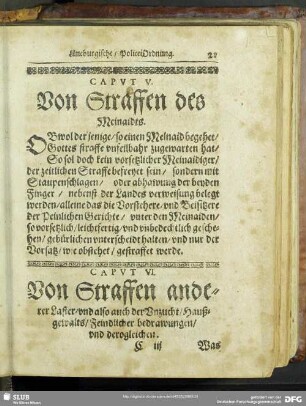 Aneburgische / PoliceiOrdnung. 21
CAPVT V.
Von Straffen des
Meinaides.
OBwol der jenige / so einen Meinaid begehet /
Gottes straffe unfeilbahr zugewarten hat /
So sol doch kein vorsetzlicher Meinaidiger /
der zeitlichen Straffe befreyet sein / sondern mit
Staupenschlagen / oder abhawung der beyden
Finger / nebenst der Landes verweisung belegt
werden / alleine das die Vorstehere / und Beisitzere
der Peinlichen Gerichte / unter den Meinaiden /
so vorsetzlich / leichtfertig / und unbedechtlich geschehen /
hen / gebürlichen unterscheidt halten / und nur der
Vorsatz / wie obstehet / gestraffet werde.
CAPVT VI.
Von Straffen ande-
rer Laster / und also auch der Vnzucht / Hauß-
gewalts / Feindlicher bedrawungen /
und derogleichen.
C iij Was
SLUB
Wir führen Wissen.
gefördert von der
Deutschen Forschungsgemeinschaft